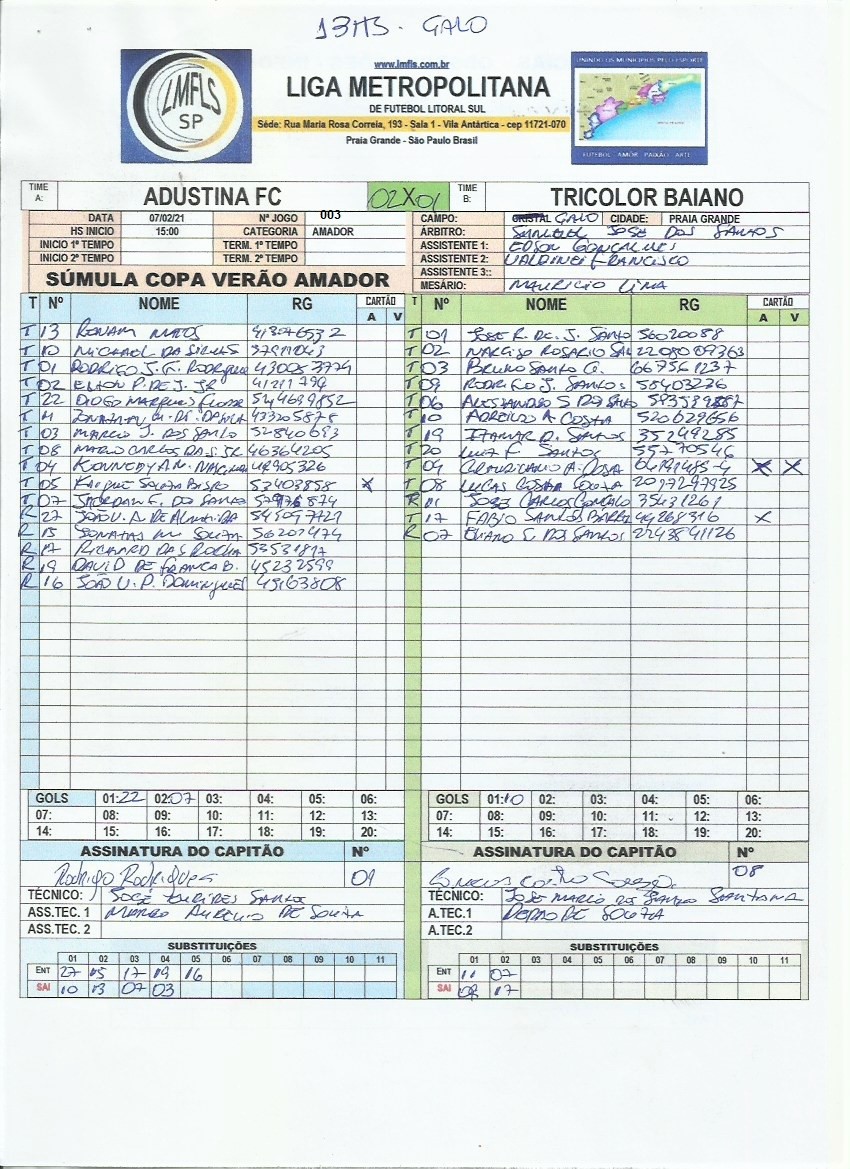 13HS - GALO
www.lmfls.com.br
LIGA METROPOLITANA
DE FUTEBOL LITORAL SUL
Séde: Rua Maria Rosa Correia, 193 - Sala 1 - Vila Antártica - cep 11721-070
Praia Grande - São Paulo Brasil
LMFLS
SP
UNINDO OS MUNICIPIOS PELO ESPORTE
FUTEBOL AMOR PAIXÃO ARTE
TIME A: ADUSTINA FC 02X01 TIME B: TRICOLOR BAIANO
DATA 07/02/21 Nº JOGO 003 CAMPO: CRISTAL GALO CIDADE: PRAIA GRANDE
HS INICIO 15:00 CATEGORIA AMADOR ÁRBITRO: SAMUEL JOSE DOS SANTOS
INICIO 1º TEMPO TERM. 1º TEMPO ASSISTENTE 1: EDSON GONÇALVES
INICIO 2º TEMPO TERM. 2º TEMPO ASSISTENTE 2: VALDINEI FRANCISCO
ASSISTENTE 3::
SÚMULA COPA VERÃO AMADOR MESÁRIO: MAURICIO LIMA
T Nº NOME RG CARTÃO A V T Nº NOME RG CARTÃO A V
T 13 RENAM MATOS T 01 JOSE R. DE. J. SANTO 56020088
T 10 MICHAEL DA T 02 NARCISO ROSARIO
T 01 RODRIGO J. 430083779 T 03 BRUNO SANTO G. 667561237
T 02 ELTON P. DE J. JR 41211799 T 09 RODRIGO J. SANTOS 58403276
T 22 DIOGO MARQUES T 06 ALESSANDRO S DOS
T 11 433205878 T 10 A. COSTA 520629656
T 03 MARCIO J. DOS SANTO 52840693 T 19 ITAMAR D. SANTOS 35249285
T 08 MARIO CARLOS DA S. JR 46364205 T 20 LUIZ F. SANTOS 55770546
T 04 KENNEDY T 04 A. COSTA X X
T 05 KAIQUE SOUZA 53403858 X T 08 LUCAS COSTA SOUZA 2017297925
T 07 DO SANTO R 01 JOSE CARLOS GONÇALO 35431261
R 27 JOÃO V. A. DE ALMEIDA T 17 FABIO SANTOS 44268316 X
R 15 JONATAS M SOUZA 56201474 R 07 S. DOS SANTOS
R 17 RICHARD DAS ROCHA 53531817
R 19 DAVID DE FRANCA B. 45232599
R 16 JOÃO V. P. DOMINGUES 49163808
GOLS 01:22 02:07 03: 04: 05: 06: GOLS 01:10 02: 03: 04: 05: 06:
07: 08: 09: 10: 11: 12: 13: 07: 08: 09: 10: 11: 12: 13:
14: 15: 16: 17: 18: 19: 20: 14: 15: 16: 17: 18: 19: 20:
ASSINATURA DO CAPITÃO Nº ASSINATURA DO CAPITÃO Nº
Rodrigo Rodrigues 01 08
TÉCNICO: JOSÉ SANTOS TÉCNICO: JOSE MARIO DOS SANTOS SANTANA
ASS.TEC. 1 MARCO AURELIO DE SOUZA A.TEC.1 PEDRO DE SOUZA
ASS.TEC. 2 A.TEC.2
SUBSTITUIÇÕES SUBSTITUIÇÕES
01 02 03 04 05 06 07 08 09 10 11 01 02 03 04 05 06 07 08 09 10 11
ENT 27 15 17 19 16 ENT 11 07
SAI 10 13 07 03 SAI 08 17